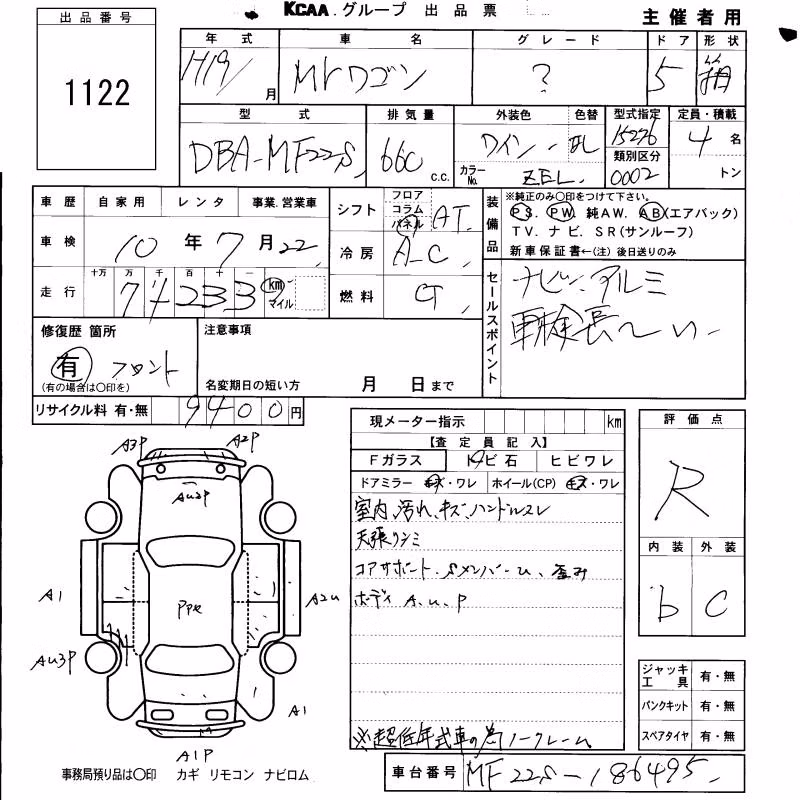 KCAA.グループ 出品票
主催者用
出品番号
1122
年式 車名 グレード ドア 形状
H19/ 月 MRワゴン ? 5 箱
型式 排気量 外装色 色替 型式指定 定員・積載
DBA-MF22S 660 c.c. ワイン 15276 4 名
カラーNo. ZEL 類別区分 0002 トン
車歴 自家用 レンタ 事業.営業車
シフト フロア コラム パネル AT
装備品 ※純正のみ○印をつけて下さい。
PS. PW. 純AW. AB(エアバック)
TV. ナビ. SR(サンルーフ)
新車保証書←(注)後日送りのみ
車検 10 年 7 月 22
冷房 A-C
走行 十万 万 千 百 十 一
74233 km マイル
燃料 G
セールスポイント
ナビ、アルミ
車検長〜い
修復歴 箇所
有 フロント
(有の場合は○印を)
注意事項
名変期日の短い方 月 日まで
リサイクル料 有・無 9400円
現メーター指示 km
【査定員記入】
Fガラス トビ石 ヒビワレ
ドアミラー キズ・ワレ ホイール(CP) キズ・ワレ
室内、汚れ、キズ、ハンドルスレ
天張リシミ
コアサポート、Sメンバーu、歪み
ボディ A、u、P
※超低年式車の為ノークレーム
評価点
R
内装 外装
b C
ジャッキ工具 有・無
パンクキット 有・無
スペアタイヤ 有・無
A3P A2P
Au2P
A1 A2u
Au3P
A1
A1P
事務局預り品は○印 カギ リモコン ナビロム
車台番号 MF22S-186495